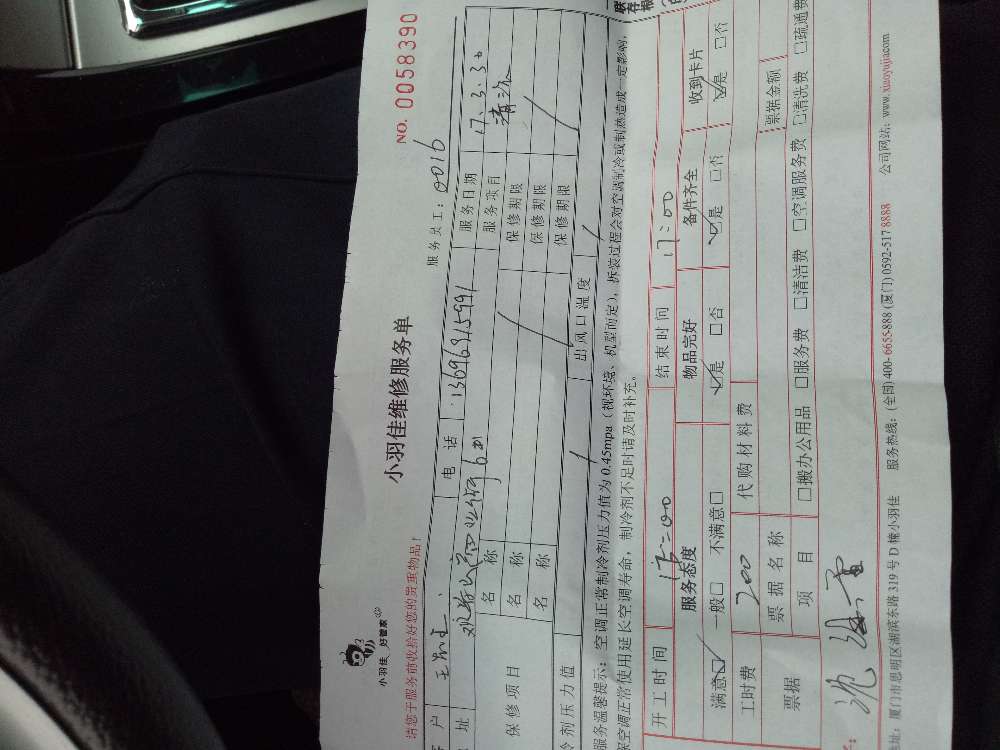 小羽佳 好管家
小羽佳维修服务单
NO. 0058390
请您于服务前收拾好您的贵重物品！
服务员工：0016
户 电 话 13696915991 服务日期 17.3.30
址 服务项目 清洗
保修项目 名 称 保修期限
名 称 保修期限
名 称 保修期限
冷剂压力值 出风口温度
服务温馨提示：空调正常制冷剂压力值为0.45mpa（视环境、机型而定），拆装过程会对空调制冷或制热造成一定影响，
保空调正常使用延长空调寿命，制冷剂不足时请及时补充。
开工时间 结束时间 17:00
服务态度 物品完好 备件齐全 收到卡片
满意☑ 一般□ 不满意□ ☑是 □否 ☑是 □否 ☑是 □否
工时费 200 代购材料费
票据 票据名称 票据金额
项 目 □搬办公用品 □服务费 □清洁费 □空调服务费 □清洗费 □疏通费
地址：厦门市思明区湖滨东路319号D梯小羽佳 服务热线：(全国)400-6655-888 (厦门)0592-5178888 公司网站：www.xiaoyujia.com